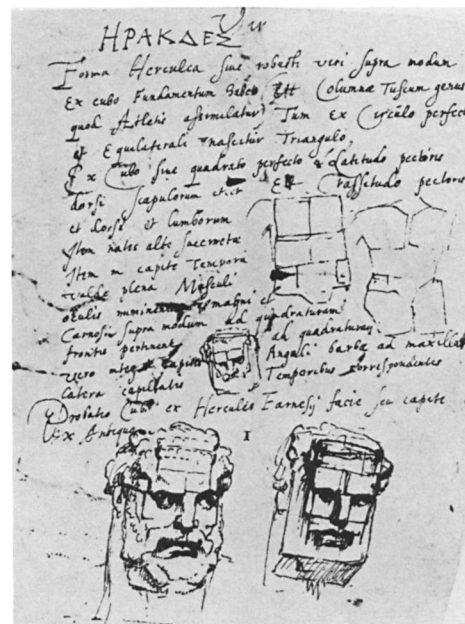 ΗΡΑΚΔΕΣ
Forma Herculea sive robusti viri supra modum
Ex cubo Fundamentum Columnae Tuscum genus
quod Atlatis assimulatur Tum Ex Circulo perfecto
et Equilaterali nascitur Triangulo,
Ex Cubo sive quadrato perfecto Latitudo pectoris
dorsi scapulorum Et Crassitudo pectoris
et dorsi et lumborum
Item nates alte
Item in capite Tempora
valde plena Musculi
oculis magni et
Carnosi supra modum ad quadraturam
frontis pertinent ad quadraturam
vero capitis Anguli barbae ad maxillas
Catera capillatis Temporibus correspondentes
Probatio Cubi ex Herculis Farnesij facie seu capite
Ex Antiquo
I